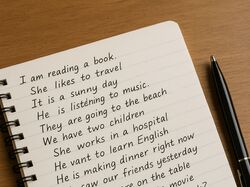 I am reading a book.
She likes to travel
It is a sunny day
He is listening to music.
They are going to the beach
We have two children
She works in a hospital
He vant to learn English
He is making dinner right now
saw our friends yesterday
re on the table
movie?